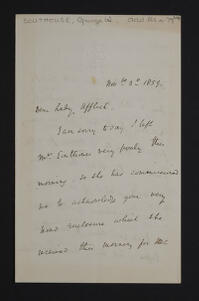 SOUTHOUSE, George W.
Nov. 3rd 1859.
Dear Lady Affleck
I am sorry to say I left
Mrs. Southouse very poorly this
morning so she has commissioned
me to acknowledge your very
kind enclosure which she
received this morning for Mr.